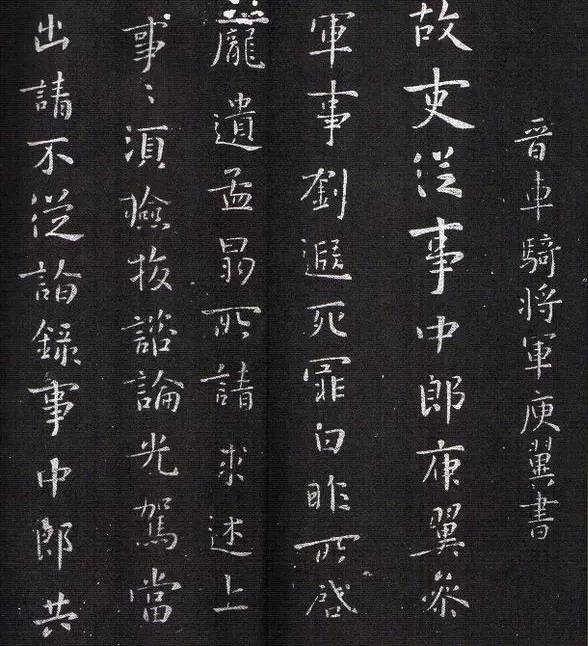 晉車騎將軍庾翼書
故吏從事中郎庾翼參
軍事劉遐死罪白昨所啓
龐遺孟昴所請求述上
事〻須檢校諮論光駕當
出請不從諮錄事中郎共